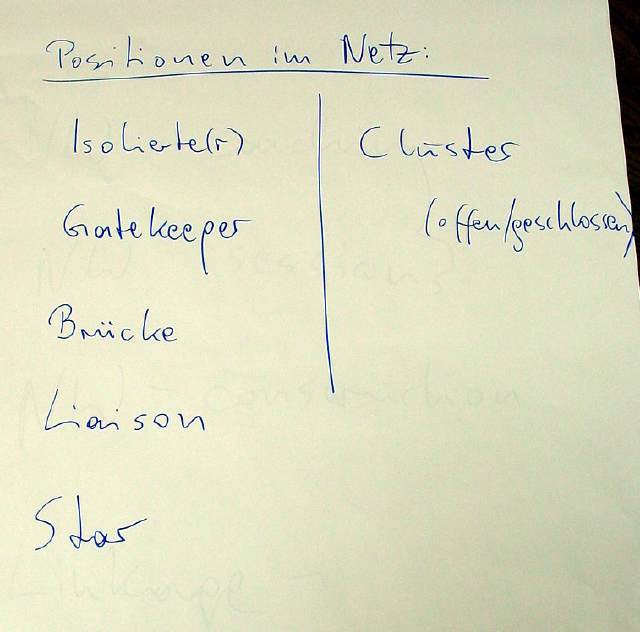 Positionen im Netz:
Isolierte(r)
Gatekeeper
Brücke
Liaison
Star
Cluster
(offen/geschlossen)